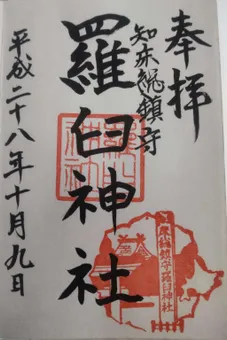 奉拝
知床総鎮守
羅臼神社
平成二十八年十月九日
羅臼神社